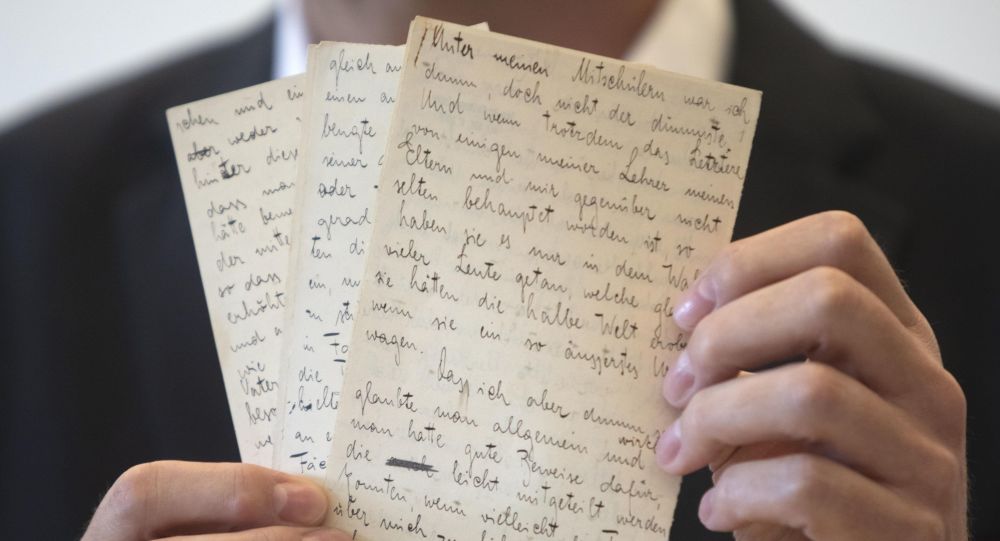 schen und ein
aber weder
hinter diese
dass man
hätte
der
so dass
erhöht
und
wie
Vater
beso
we
gleich au
einen a
beugte
seiner
oder
gerad
ten di
ein,
in
die
an
Unter meinen Mitschülern war ich
dumm, doch nicht der dümmste.
Und wenn trotzdem das Letztere
von einigen meiner Lehrer meinen
Eltern und mir gegenüber nicht
selten behauptet worden ist, so
haben sie es nur in dem Wa
vieler Leute getan, welche gla
sie hätten die halbe Welt erobe
wenn sie ein so äusserstes U
wagen.
Dass ich aber dumm
glaubte man allgemein und wirkl
man hatte gute Beweise dafür,
die leicht mitgeteilt werden
konnten, wenn vielleicht
über mich